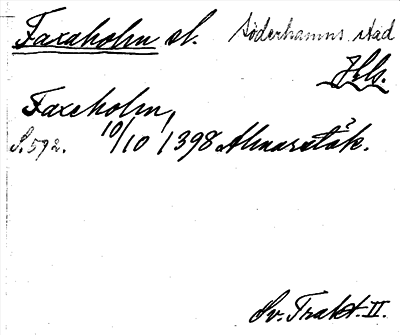 Faxaholm sl. Söderhamns stad
Hls.
Faxeholm,
S. 592. 10/10 1398 Almarstäk.
Sv. Trakt. II.